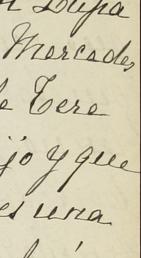 Lupa
Mercedes,
de Tere
jo y que
es una